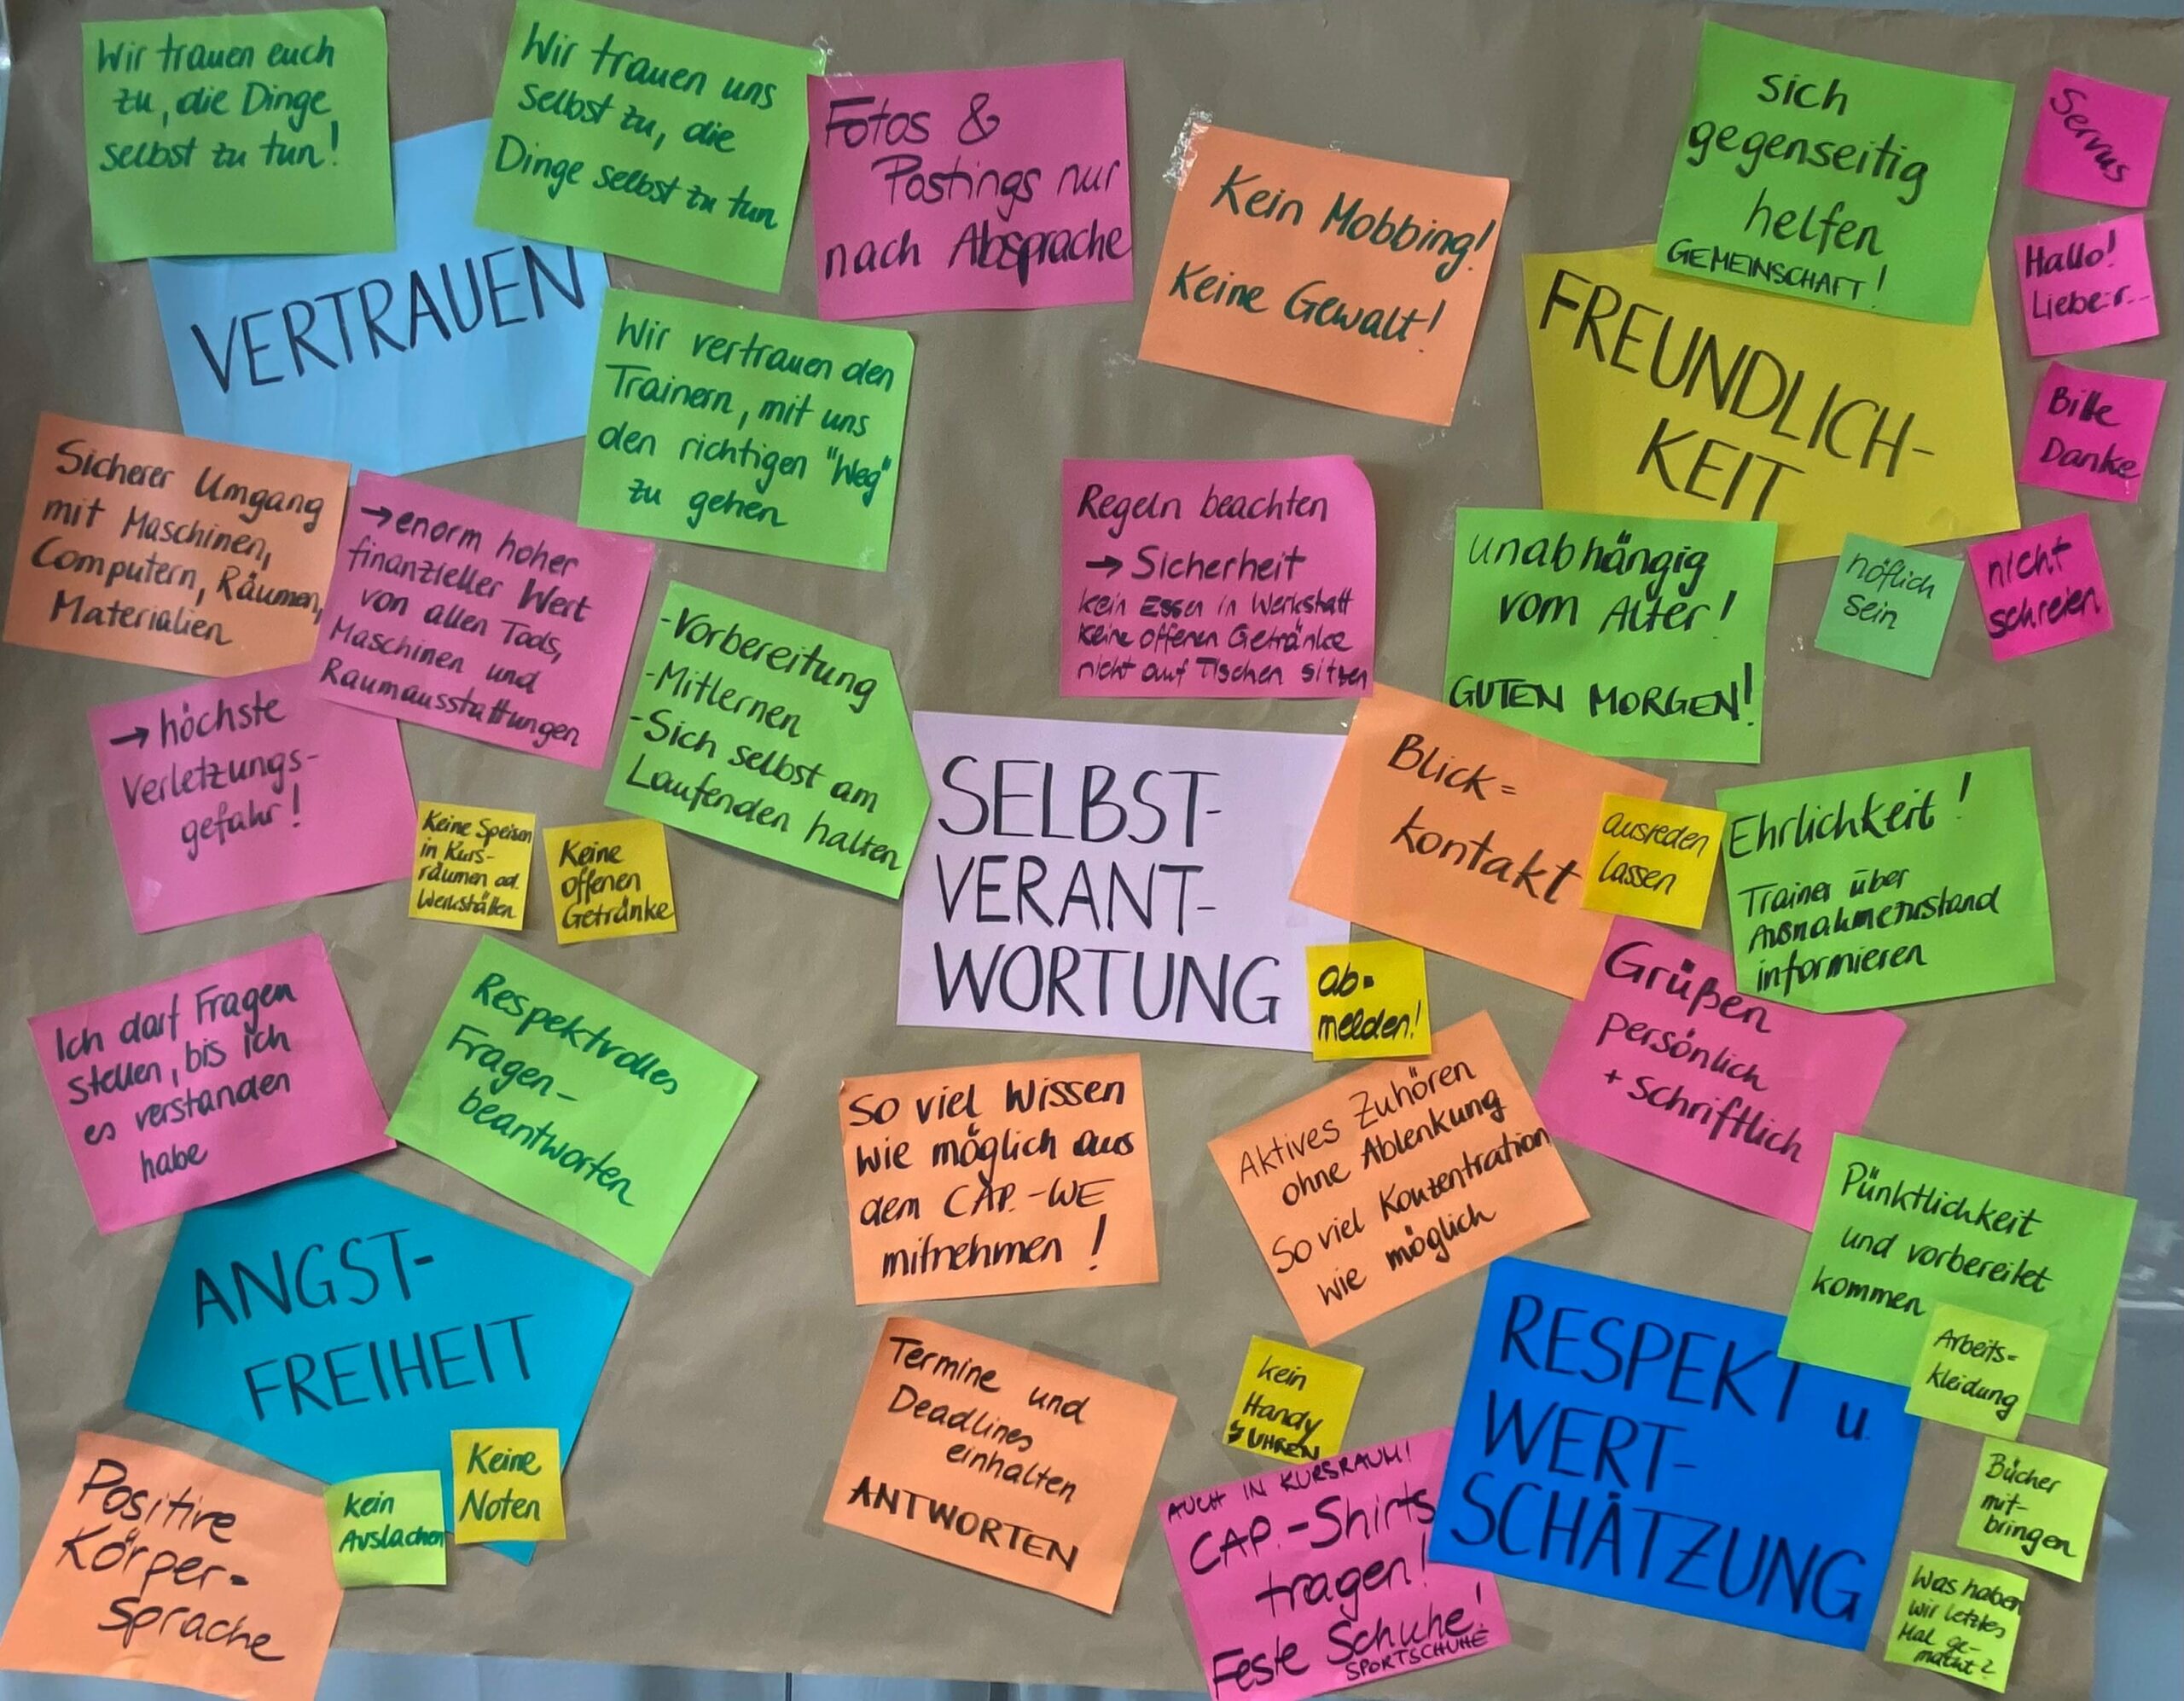 Wir trauen euch
zu, die Dinge
selbst zu tun!
Wir trauen uns
selbst zu, die
Dinge selbst zu tun
VERTRAUEN
Wir vertrauen den
Trainern, mit uns
den richtigen "Weg"
zu gehen
Fotos &
Postings nur
nach Absprache
Kein Mobbing!
Keine Gewalt!
sich
gegenseitig
helfen
GEMEINSCHAFT!
FREUNDLICH-
KEIT
Servus
Hallo!
Liebe:r...
Bitte
Danke
höflich
sein
nicht
schreien
unabhängig
vom Alter!
GUTEN MORGEN!
Sicherer Umgang
mit Maschinen,
Computern, Räumen,
Materialien
→ enorm hoher
finanzieller Wert
von allen Tools,
Maschinen und
Raumausstattungen
→ höchste
Verletzungs-
gefahr!
Keine Speisen
in Kurs-
räumen od.
Werkstätten
Keine
offenen
Getränke
- Vorbereitung
- Mitlernen
- Sich selbst am
Laufenden halten
Regeln beachten
→ Sicherheit
kein Essen in Werkstatt
keine offenen Getränke
nicht auf Tischen sitzen
SELBST-
VERANT-
WORTUNG
Blick=
kontakt
ausreden
lassen
ab-
melden!
Ehrlichkeit!
Trainer über
Ausnahmezustand
informieren
Grüßen
persönlich
+ schriftlich
Ich darf Fragen
stellen, bis ich
es verstanden
habe
Respektvolles
Fragen-
beantworten
ANGST-
FREIHEIT
Positive
Körper-
sprache
kein
Auslachen
Keine
Noten
So viel Wissen
wie möglich aus
dem CAP.-WE
mitnehmen!
Aktives Zuhören
ohne Ablenkung
So viel Konzentration
wie möglich
Termine und
Deadlines
einhalten
ANTWORTEN
kein
Handy
UHREN
AUCH IN KURSRAUM!
CAP.-Shirts
tragen!
Feste Schuhe!
SPORTSCHUHE
RESPEKT u.
WERT-
SCHÄTZUNG
Pünktlichkeit
und vorbereitet
kommen
Arbeits=
kleidung
Bücher
mit-
bringen
Was haben
wir letztes
Mal ge-
macht?